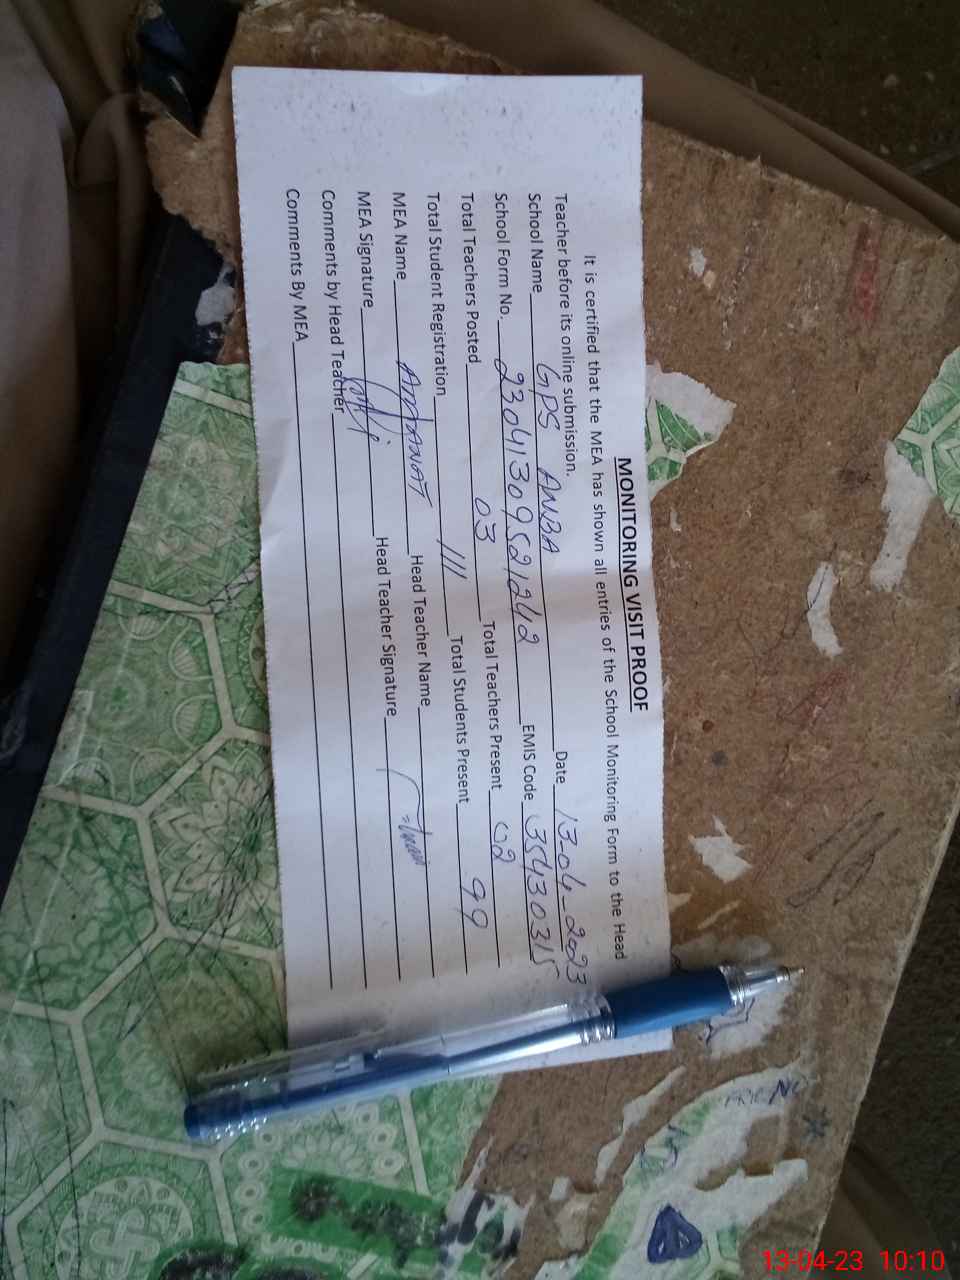 MONITORING VISIT PROOF
It is certified that the MEA has shown all entries of the School Monitoring Form to the Head
Teacher before its online submission.
School Name GPS ANBA Date 13-04-2023
School Form No. 23041309521242 EMIS Code 35430315
Total Teachers Posted 03 Total Teachers Present 02
Total Student Registration 111 Total Students Present 99
MEA Name AMANAT Head Teacher Name
MEA Signature Head Teacher Signature
Comments by Head Teacher
Comments By MEA
13-04-23 10:10